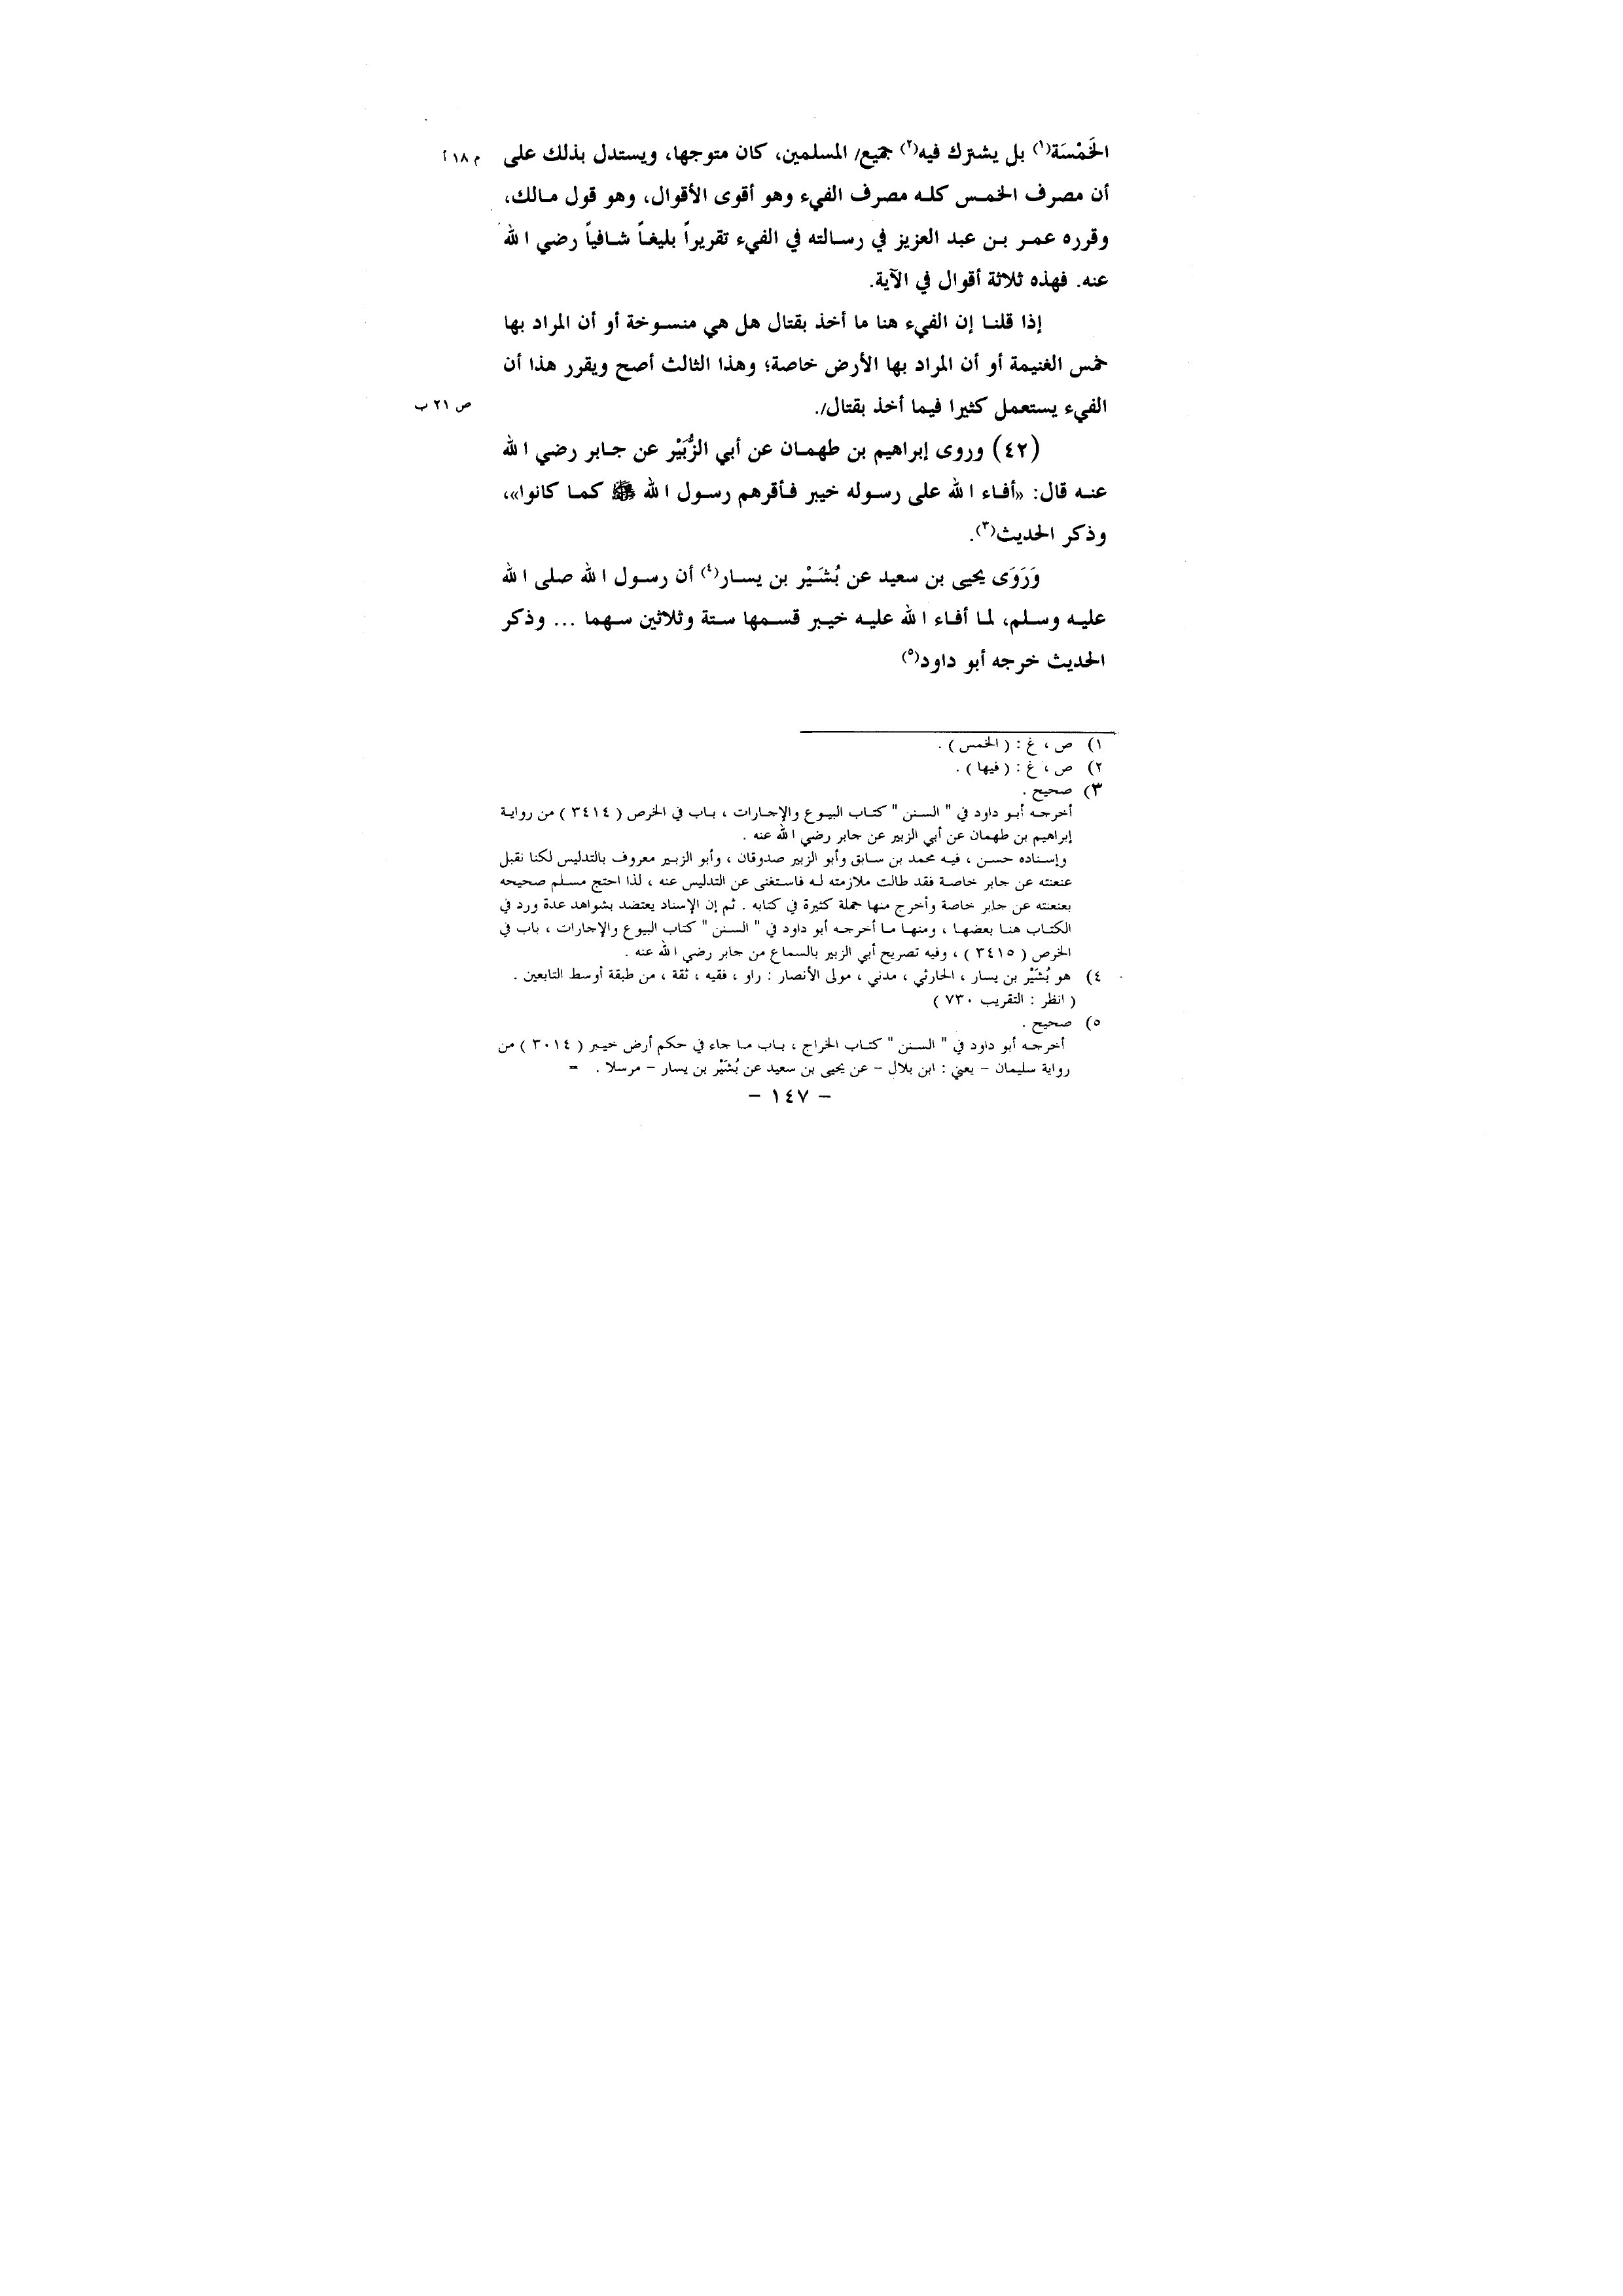 الخَمْسَة(١) بل يشترك فيه(٢) جميع/ المسلمين، كان متوجها، ويستدل بذلك على م ١٨ أ
أن مصرف الخمس كله مصرف الفيء وهو أقوى الأقوال، وهو قول مالك،
وقرره عمر بن عبد العزيز في رسالته في الفيء تقريراً بليغاً شافياً رضي الله
عنه. فهذه ثلاثة أقوال في الآية.
إذا قلنا إن الفيء هنا ما أخذ بقتال هل هي منسوخة أو أن المراد بها
خمس الغنيمة أو أن المراد بها الأرض خاصة؛ وهذا الثالث أصح ويقرر هذا أن
الفيء يستعمل كثيرا فيما أخذ بقتال/. ص ٢١ ب
(٤٢) وروى إبراهيم بن طهمان عن أبي الزُّبَيْر عن جابر رضي الله
عنه قال: «أفاء الله على رسوله خيبر فأقرهم رسول الله ﷺ كما كانوا»،
وذكر الحديث(٣).
وَرَوَى يحيى بن سعيد عن بُشَيْر بن يسار(٤) أن رسول الله صلى الله
عليه وسلم، لما أفاء الله عليه خيبر قسمها ستة وثلاثين سهما ... وذكر
الحديث خرجه أبو داود(٥)
١) ص ، غ : ( الخمس ) .
٢) ص ، غ : ( فيها ) .
٣) صحيح .
أخرجه أبو داود في " السنن " كتاب البيوع والإجارات ، باب في الخرص ( ٣٤١٤ ) من رواية
إبراهيم بن طهمان عن أبي الزبير عن جابر رضي الله عنه .
وإسناده حسن ، فيه محمد بن سابق وأبو الزبير صدوقان ، وأبو الزبير معروف بالتدليس لكنا نقبل
عنعنته عن جابر خاصة فقد طالت ملازمته له فاستغنى عن التدليس عنه ، لذا احتج مسلم صحيحه
بعنعنته عن جابر خاصة وأخرج منها جملة كثيرة في كتابه . ثم إن الإسناد يعتضد بشواهد عدة ورد في
الكتاب هنا بعضها ، ومنها ما أخرجه أبو داود في " السنن " كتاب البيوع والإجارات ، باب في
الخرص ( ٣٤١٥ ) ، وفيه تصريح أبي الزبير بالسماع من جابر رضي الله عنه .
٤) هو بُشَيْر بن يسار ، الحارثي ، مدني ، مولى الأنصار : راو ، فقيه ، ثقة ، من طبقة أوسط التابعين .
( انظر : التقريب ٧٣٠ )
٥) صحيح .
أخرجه أبو داود في " السنن " كتاب الخراج ، باب ما جاء في حكم أرض خيبر ( ٣٠١٤ ) من
رواية سليمان – يعني : ابن بلال – عن يحيى بن سعيد عن بُشَيْر بن يسار – مرسلا . =
– ١٤٧ –